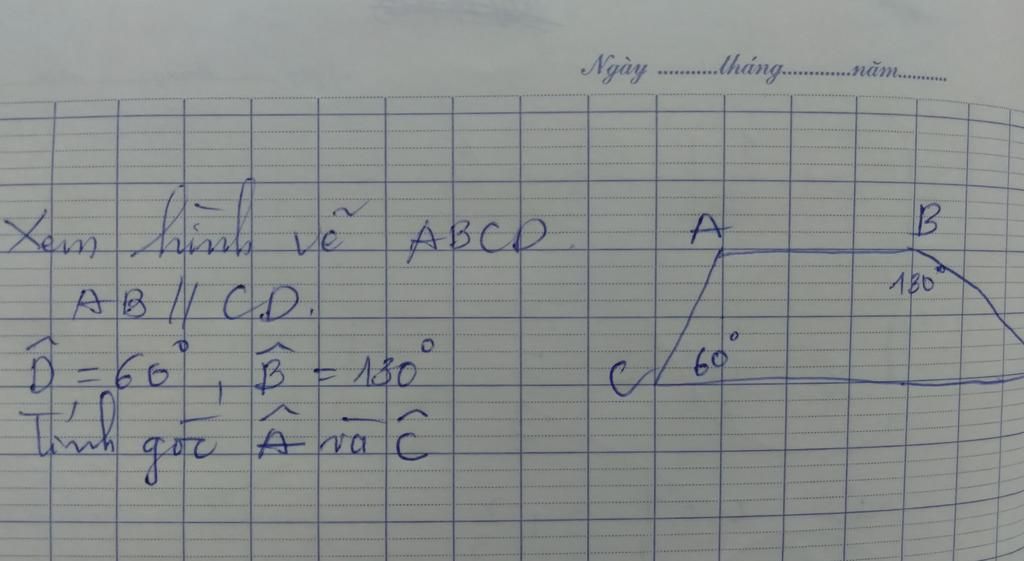 Ngày ............tháng.............năm.........
Xem hình vẽ ABCD.
AB // CD.
D̂ = 60°, B̂ = 130°
Tính góc Â và Ĉ
A
B
130°
60°
C